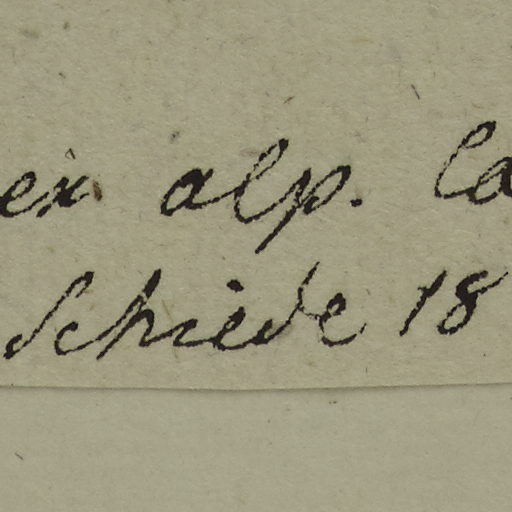 ex alp. Ca
Schiede 18